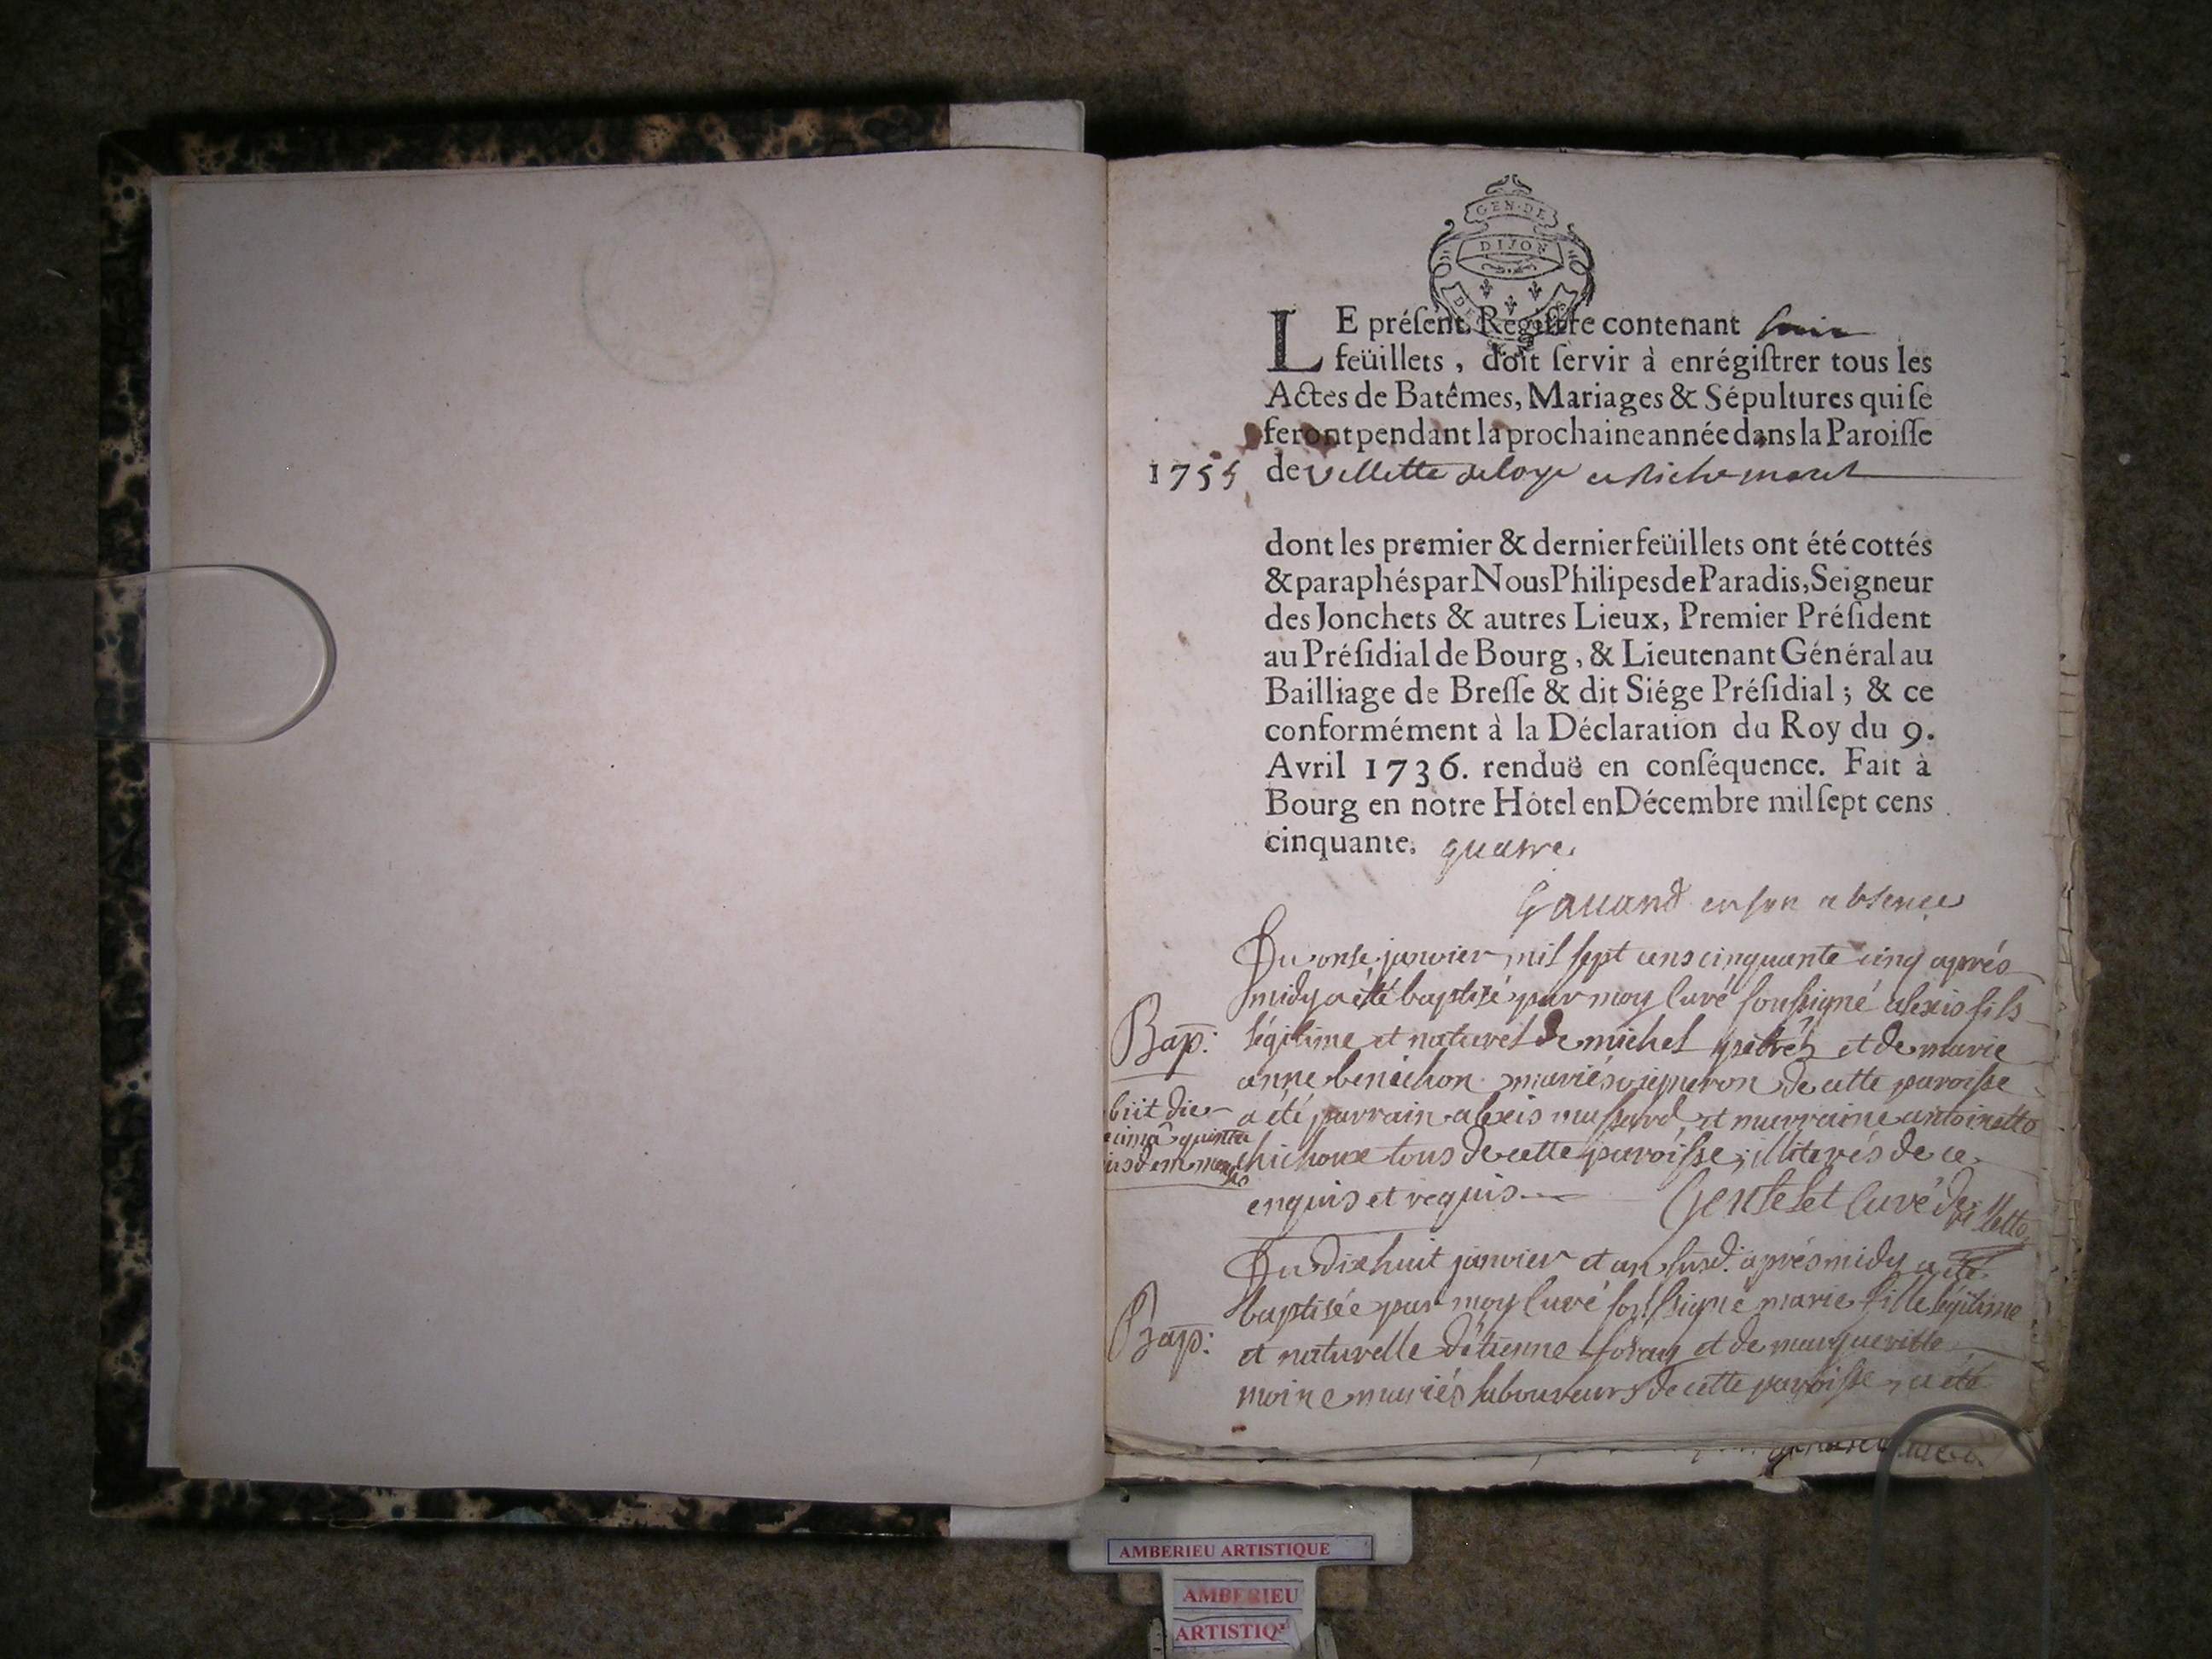 GEN·DE
DIJON
LE préſent Regiſtre contenant
feüillets, doit ſervir à enrégiſtrer tous les
Actes de Batêmes, Mariages & Sépultures qui ſe
feront pendant la prochaine année dans la Paroiſſe
1755 de Villette de loye et Richemont
dont les premier & dernier feüillets ont été cottés
& paraphés par Nous Philipes de Paradis, Seigneur
des Jonchets & autres Lieux, Premier Préſident
au Préſidial de Bourg, & Lieutenant Général au
Bailliage de Breſſe & dit Siége Préſidial; & ce
conformément à la Déclaration du Roy du 9.
Avril 1736. renduë en conſéquence. Fait à
Bourg en nôtre Hôtel en Décembre mil ſept cens
cinquante. quatre.
Gauand en son absence
Du onse janvier mil sept cens cinquante cinq aprés
midy a été baptisé par moy curé soussigné alexis fils
Bap: légitime et naturel de michel et de marie
anne benichon mariés vigneron de cette paroisse
a été parrain alexis mussard et marraine antoinette
chichoux tous de cette paroisse, illiterés de ce
enquis et requis Genselet curé de villette
biit die
cimâ quinta
usdem mensis
Du dixhuit janvier et an susd. aprés midy a été
baptisée par moy curé soussigné marie fille légitime
Bap: et naturelle d'étienne et de margueritte
moine mariés laboureurs de cette paroisse, a été
AMBERIEU ARTISTIQUE
AMBERIEU
ARTISTIQ